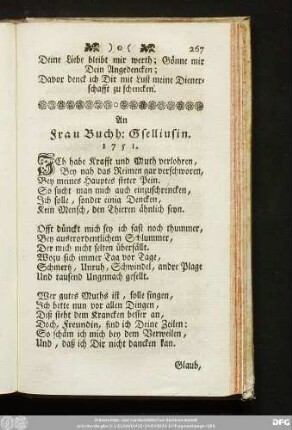 )o( 267
Deine Liebe bleibt mir werth; Gönne mir
Dein Angedencken;
Davor denck ich Dir mit Lust meine Diener-
schafft zu schencken.
An
Frau Buchh: Gselliusin.
1751.
Ich habe Krafft und Muth verlohren,
Bey nah das Reimen gar verschworen,
Bey meines Hauptes steter Pein.
So sucht man mich auch einzuschrencken,
Ich solle, sonder einig Dencken,
Kein Mensch, den Thieren ähnlich seyn.
Offt dünckt mich sey ich fast noch thummer,
Bey ausserordentlichem Schlummer,
Der mich nicht selten überfällt.
Wozu sich immer Tag vor Tage,
Schmertz, Unruh, Schwindel, andre Plage
Und tausend Ungemach gesellt.
Wer gutes Muths ist, solle singen,
Ich bette nun vor allen Dingen,
Diß steht dem Krancken besser an,
Doch, Freundin, sind ich Deine Zeilen:
So schäm ich mich bey dem Verweilen,
Und, daß ich Dir nicht dancken kan.
Glaub,
DFG